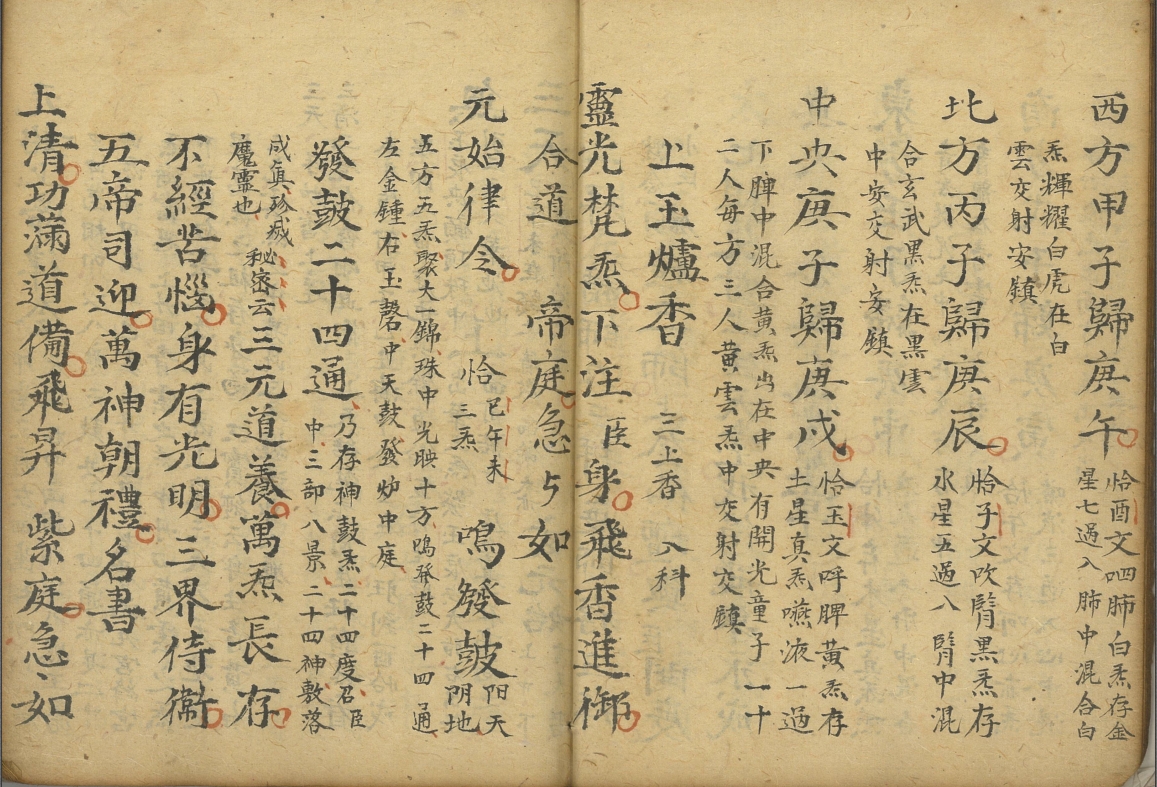 西方甲子歸庚午 恰酉文呬肺白炁存金
星七過入肺中混合白
炁輝耀白虎在白
雲交射安鎮
北方丙子歸庚辰 恰子文吹腎黑炁存
水星五過入腎中混
合玄武黑炁在黑雲
中安交射安鎮
中央庚子歸庚戌 恰玉文呼脾黃炁存
土星真炁嚥液一過
下脾中混合黃炁出在中央有開光童子一十
二人每方三人黃雲炁中交射交鎮
上玉爐香 三上香 八科
靈光梵炁下注臣身飛香進御
合道 帝庭急々如
元始律令 恰 巳午未
三炁 鳴發鼓 陽天
陰地
五方五炁聚大一錦珠中光映十方鳴發鼓二十四通
左金鍾右玉磬中天鼓發炉中庭
發鼓二十四通 乃存神鼓炁二十四度召臣
中三部八景二十四神敷落
咸真珍滅
魔靈也 秘密云 三元道養萬炁長存
不經苦惱身有光明三界侍衛
五帝司迎萬神朝禮名書
上清功滿道備飛昇 紫庭急々如